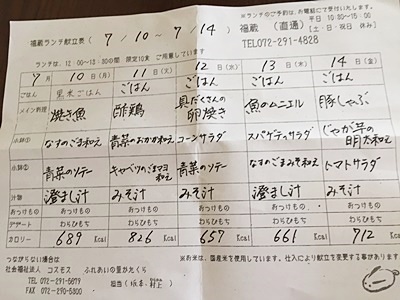 福蔵ランチ献立表 ( 7/10~7/14 )
※ランチのご予約は、お電話にて受付いたします。
福蔵 (直通) 平日 10:30~15:00
(土・日・祝日 休み)
TEL072-291-4828
ランチは、12:00~13:30の間 限定10食 ご用意しています
7月 10日(月) 11日(火) 12日(水) 13日(木) 14日(金)
ごはん 黒米ごはん ごはん ごはん ごはん ごはん
メイン料理 焼き魚 酢鶏 具だくさんの卵焼き 魚のムニエル 豚しゃぶ
小鉢① なすのごま和え 青菜のおかか和え コーンサラダ スパゲティサラダ じゃが芋の明太和え
小鉢② 青菜のソテー キャベツのごまマヨ和え 青菜のソテー なすのごまみそ和え トマトサラダ
汁物 澄まし汁 みそ汁 みそ汁 澄まし汁 みそ汁
おつけもの おつけもの おつけもの おつけもの おつけもの おつけもの
デザート わらびもち わらびもち わらびもち わらびもち わらびもち
カロリー 689 Kcal 826 Kcal 657 Kcal 661 Kcal 712 Kcal
つながらない場合は
※お米は、国産米を使用しています。仕入により献立を変更する事があります。
社会福祉法人 コスモス ふれあいの里かたくら
TEL 072-291-5679 担当
FAX 072-290-5800